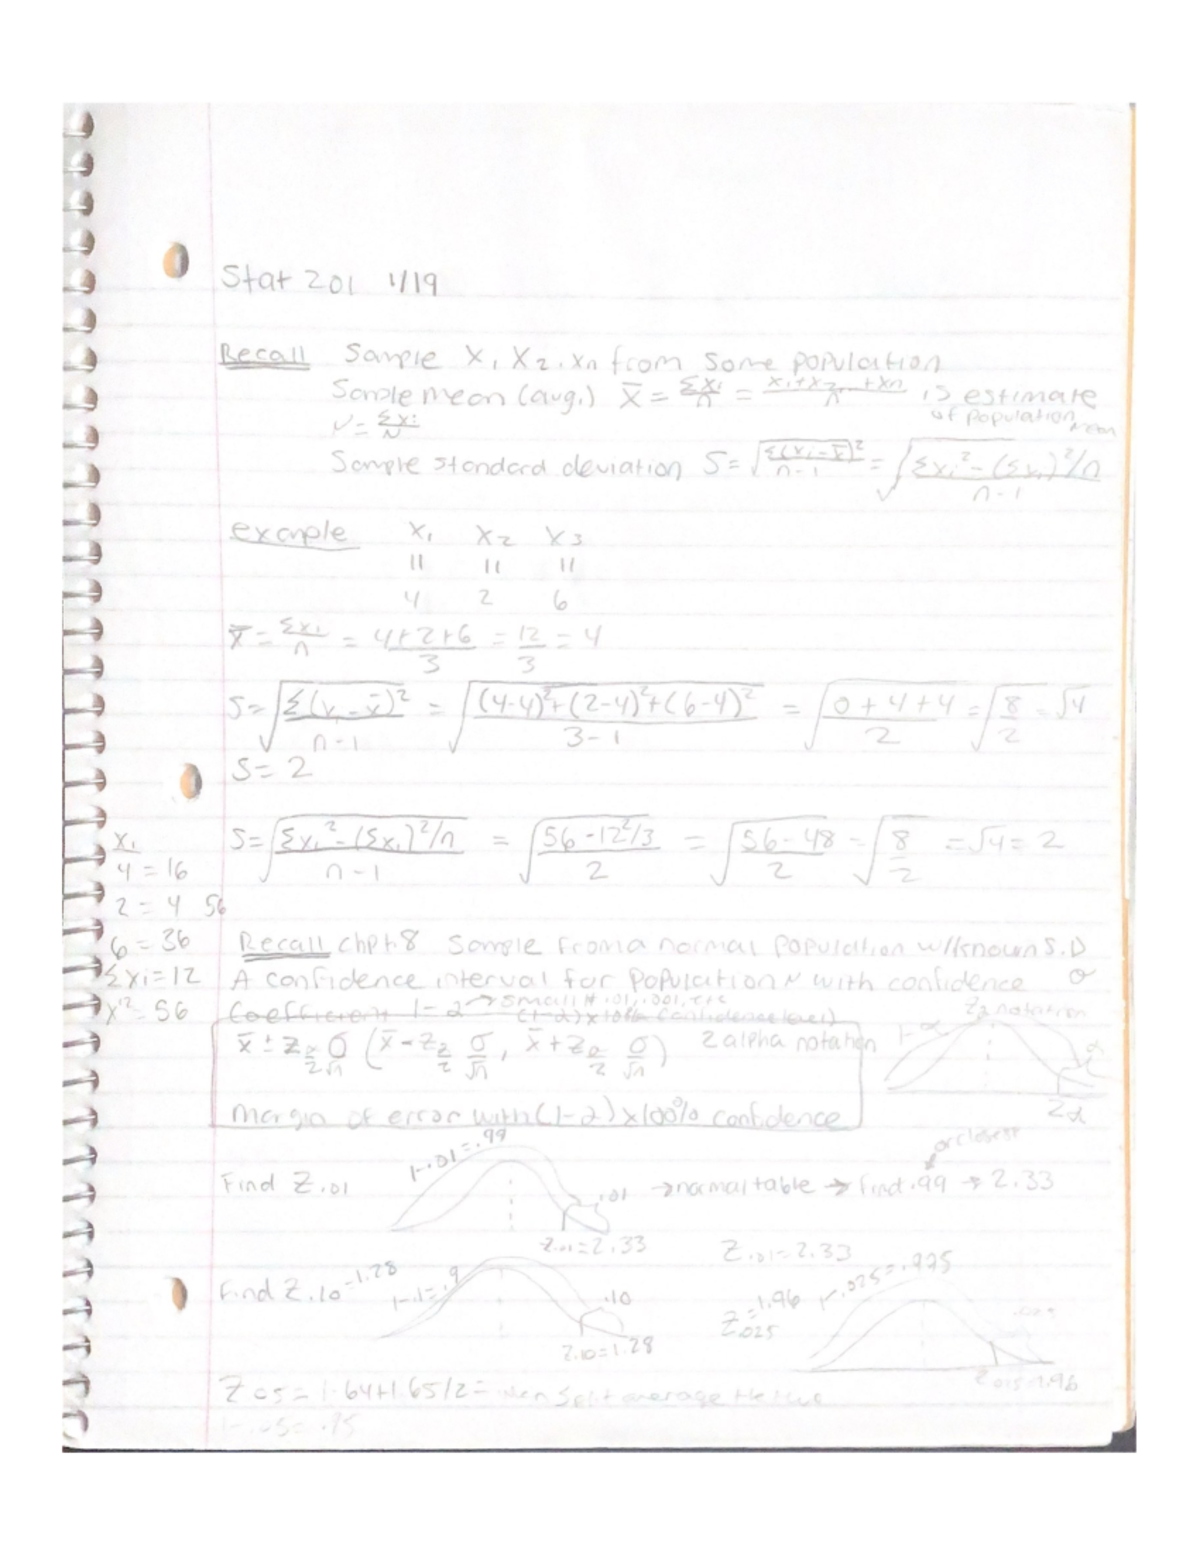 Stat 201 1/19
Recall Sample X₁ X₂ . Xn from some population
Sample mean (avg.) x̄ = Σxi/n = x₁+x₂ +xn/n is estimate of population mean
μ = Σxi/N
Sample standard deviation S = √(Σ(xi-x̄)²/n-1) = √(Σxi²-(Σxi)²/n / n-1)
example X₁ X₂ X₃
11 11 11
4 2 6
x̄ = Σxi/n = 4+2+6/3 = 12/3 = 4
S = √(Σ(xi-x̄)²/n-1) = √((4-4)²+(2-4)²+(6-4)²/3-1) = √(0+4+4/2) = √(8/2) = √4
S = 2
S = √(Σxi²-(Σxi)²/n / n-1) = √(56-12²/3 / 2) = √(56-48/2) = √(8/2) = √4 = 2
X₁
4 = 16
2 = 4 56
6 = 36
Σxi = 12
x² = 56
Recall chpt 8 Sample from a normal population w/known S.D σ
A confidence interval for population μ with confidence
Coefficient 1-α → small # .01, .001, etc
(1-α)x100% confidence level)
x̄ ± Zα/2 σ/√n (x̄ - Zα/2 σ/√n, x̄ + Zα/2 σ/√n) Z alpha notation
margin of error with (1-α) x100% confidence
Zα notation
1-α α
Zα
Find Z.01 1-.01=.99 .01 → normal table → find .99 or closest → 2.33
Z.01=2.33 Z.01=2.33
Find Z.10 = 1.28 1-.1=.9 .10
Z.10=1.28
Z.025 = 1.96 1-.025=.975 .025
Z.025=1.96
Z.05 = 1.64+1.65/2 = when split average the two
1-.05=.95